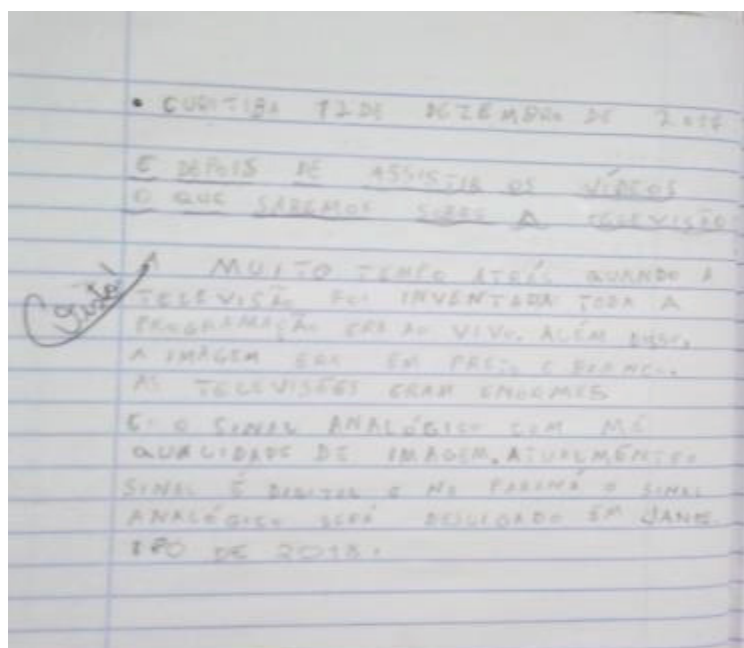 • CURITIBA 12 DE DEZEMBRO DE
E DEPOIS DE ASSISTIR OS VÍDEOS
O QUE SABEMOS SOBRE A TELEVISÃO
A MUITO TEMPO ATRÁS QUANDO A
TELEVISÃO FOI INVENTADA TODA A
PROGRAMAÇÃO ERA AO VIVO. ALÉM DISSO,
A IMAGEM ERA EM PRETO E BRANCO.
AS TELEVISÕES ERAM ENORMES
E O SINAL ANALÓGICO COM MÁ
QUALIDADE DE IMAGEM. ATUALMENTE O
SINAL É DIGITAL E NO PARANÁ O SINAL
ANALÓGICO SERÁ DESLIGADO EM JANE
IRO DE 2018.